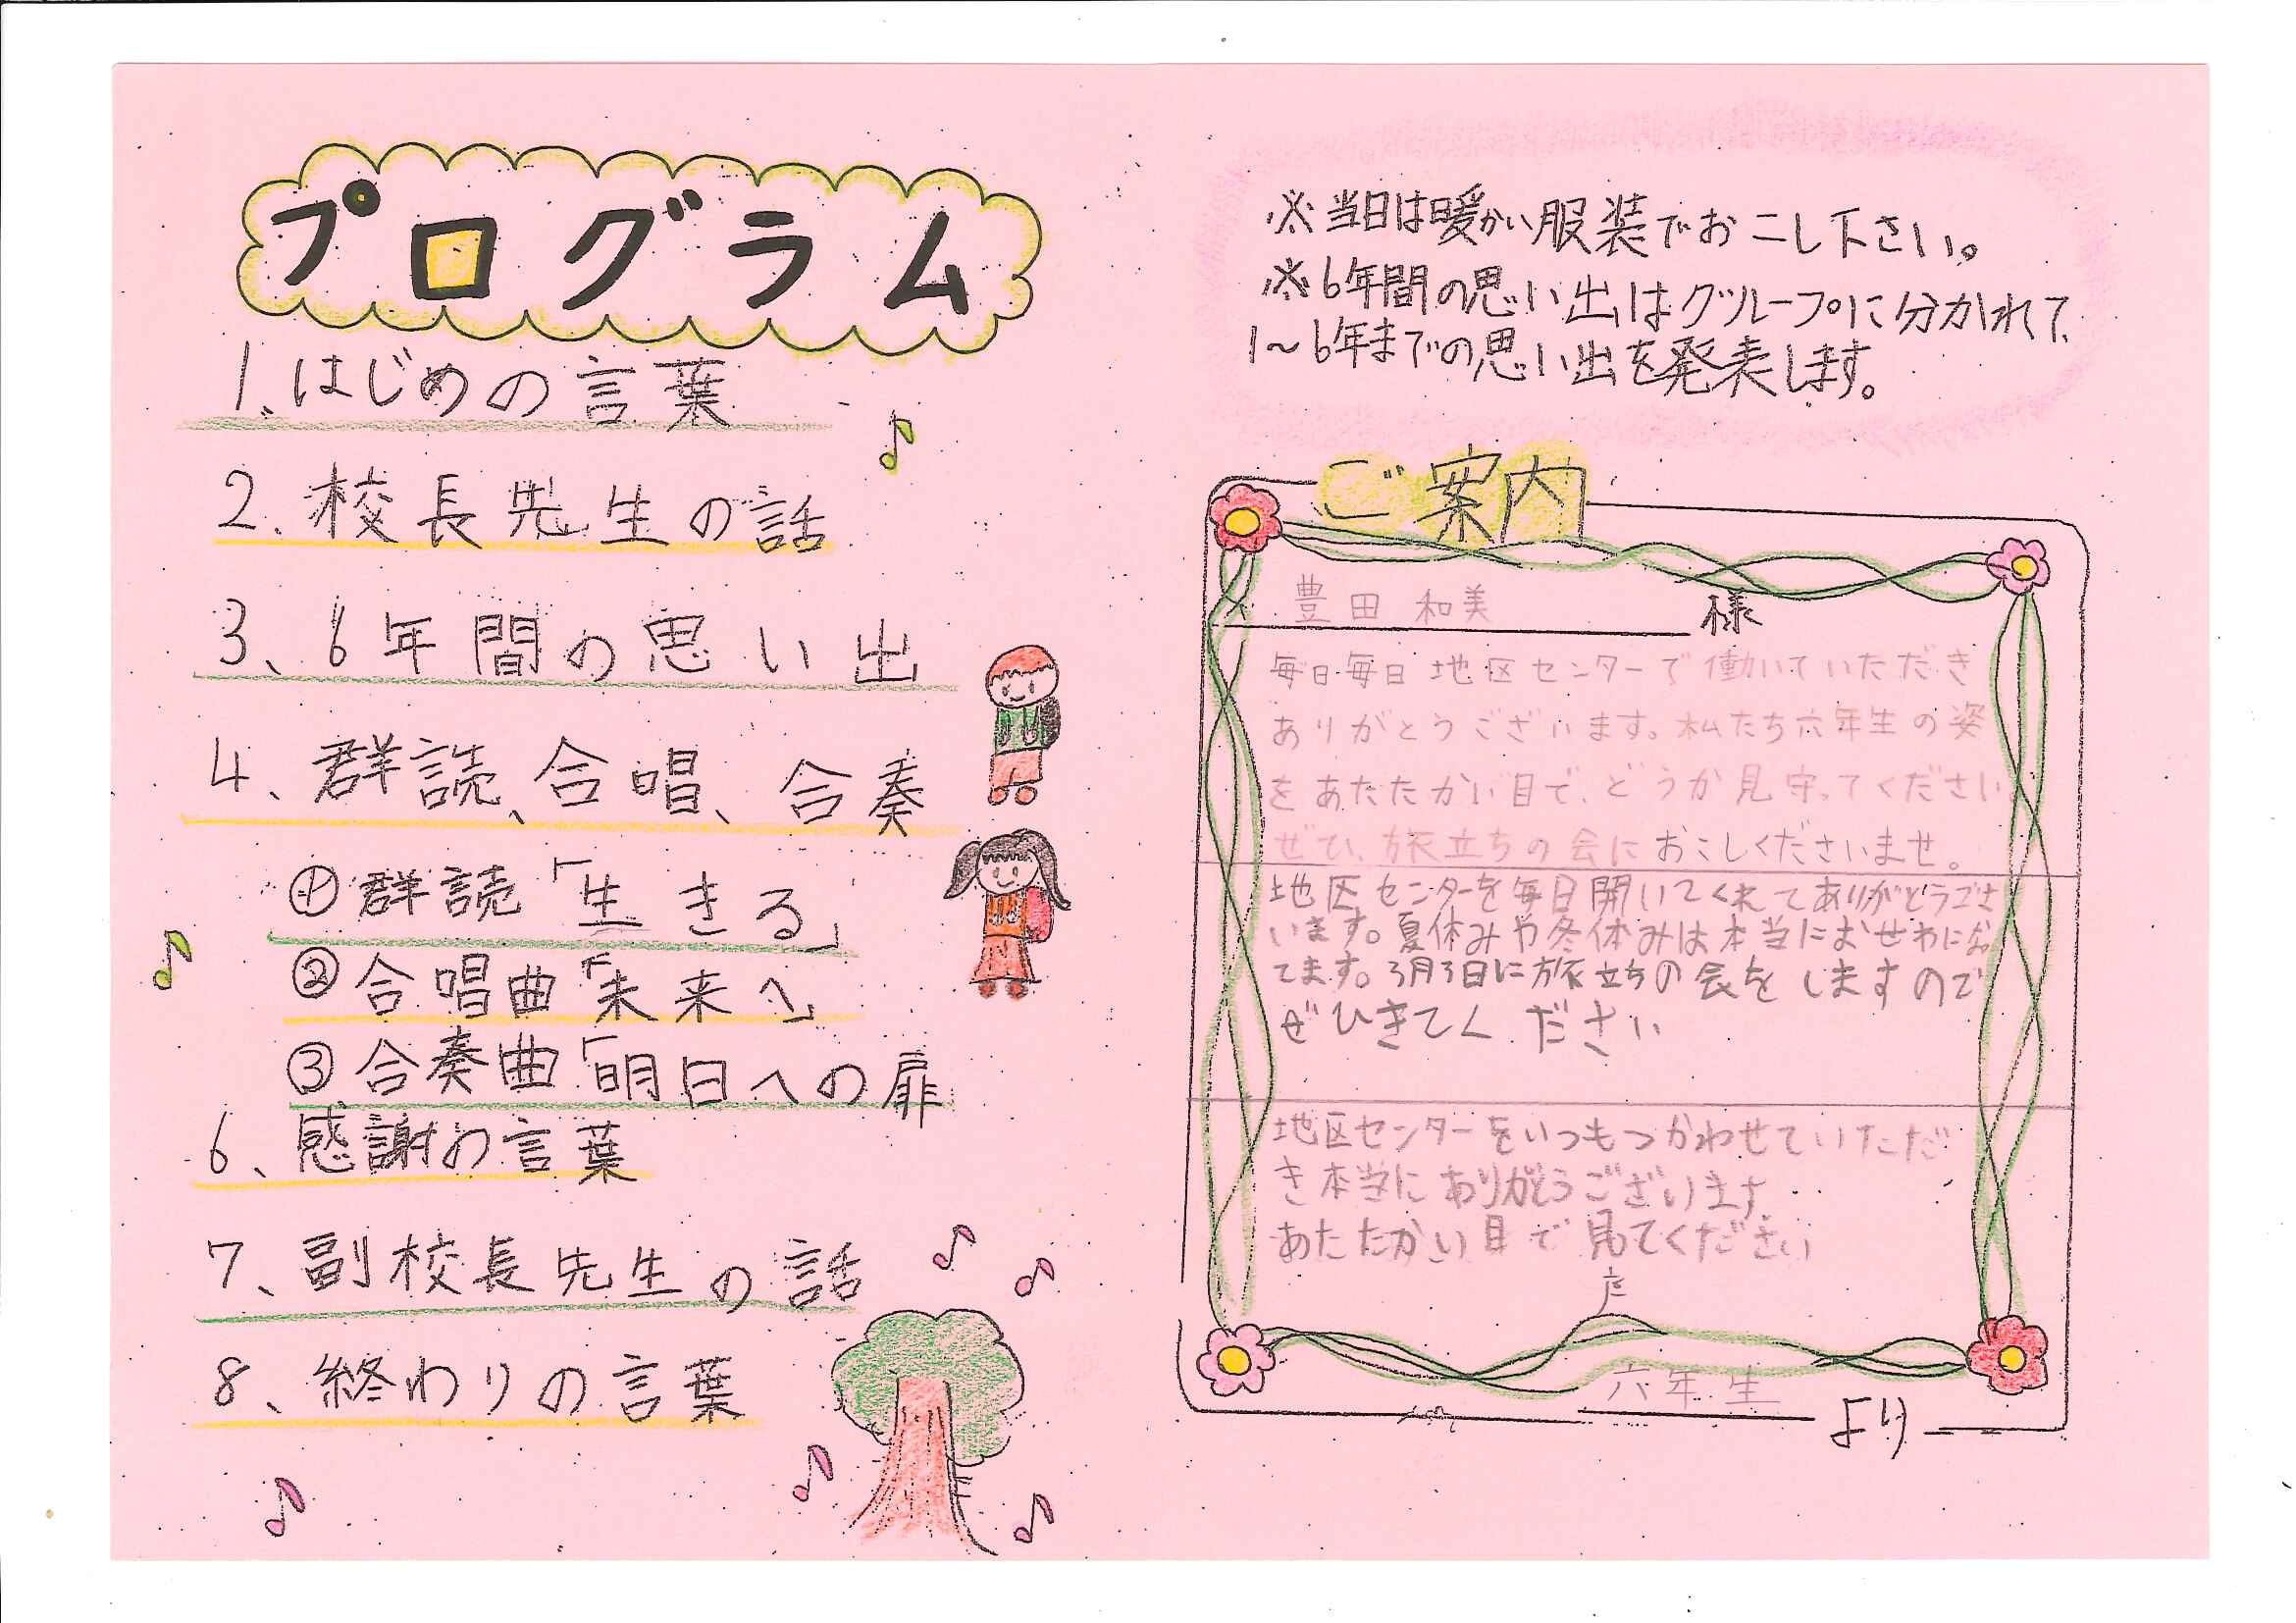 プログラム
1、はじめの言葉
2、校長先生の話
3、6年間の思い出
4、群読、合唱、合奏
①群読「生きる」
②合唱曲「未来へ」
③合奏曲「明日への扉
6、感謝の言葉
7、副校長先生の話
8、終わりの言葉
※当日は暖かい服装でおこし下さい。
※6年間の思い出はグループに分かれて、
1〜6年までの思い出を発表します。
ご案内
豊田 和美 様
毎日毎日地区センターで働いていただき
ありがとうございます。私たち六年生の姿
をあたたかい目で、どうか見守ってください。
ぜひ、旅立ちの会におこしくださいませ。
地区センターを毎日開いてくれてありがとうござ
います。夏休みや冬休みは本当におせわになっ
てます。3月3日に旅立ちの会をしますので
ぜひきてください
地区センターをいつもつかわせていただ
き本当にありがとうございます。
あたたかい目で見てください
六年生 より